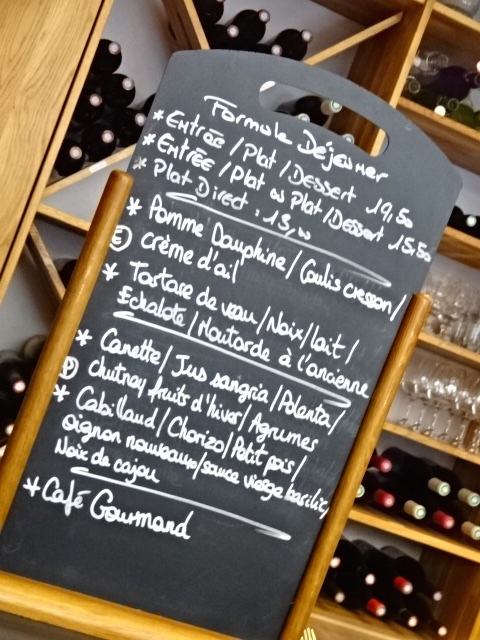 Formule Déjeuner
* Entrée / Plat / Dessert 19,50
* Entrée / Plat ou Plat / Dessert 15,50
* Plat Direct : 13,00
* Pomme Dauphine / Coulis cresson /
E crème d'ail
* Tartare de veau / Noix / lait /
Echalote / Moutarde à l'ancienne
* Canette / Jus sangria / Polenta /
P chutney fruits d'hiver / Agrumes
* Cabillaud / Chorizo / Petit pois /
oignon nouveaux / sauce vierge basilic,
Noix de cajou
* Café Gourmand